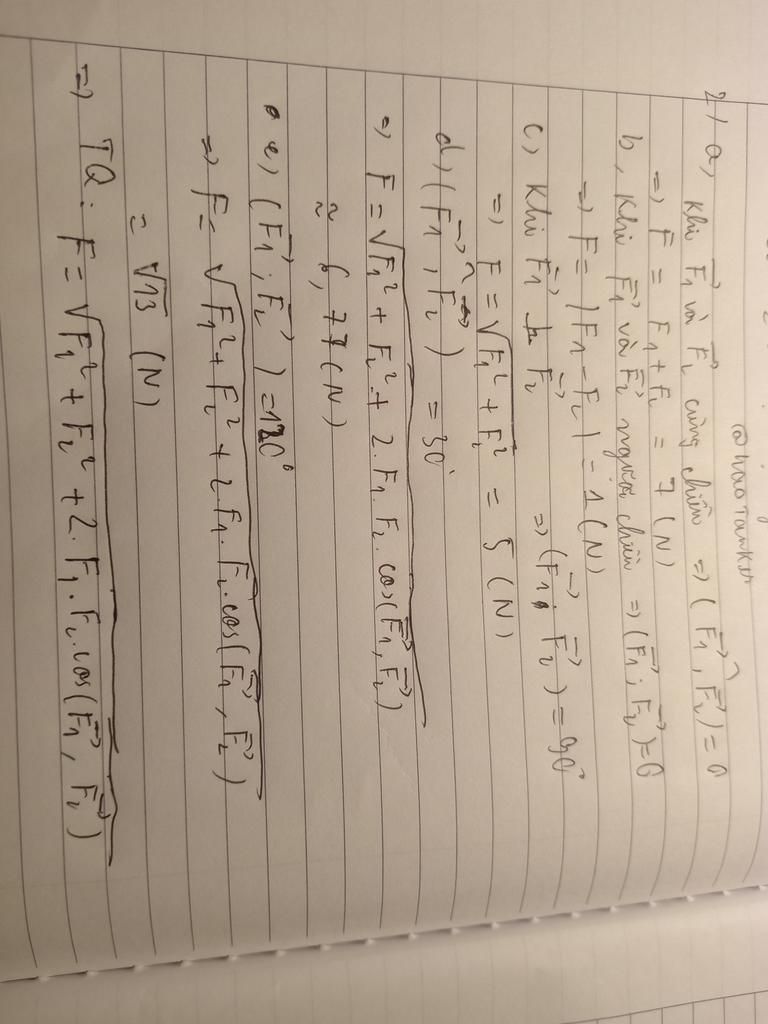 @haotankn
2) a, Khi F₁→ và F₂→ cùng chiều => (F₁→, F₂→) = 0
=> F = F₁ + F₂ = 7 (N)
b, Khi F₁→ và F₂→ ngược chiều => (F₁→; F₂→) = 0
=> F = |F₁ - F₂| = 1 (N)
c, Khi F₁→ ⊥ F₂→ => (F₁→; F₂→) = 90°
=> F = √F₁² + F₂² = 5 (N)
d, (F₁→, F₂→) = 30°
=> F = √F₁² + F₂² + 2.F₁.F₂.cos(F₁→, F₂→)
≈ 6,77 (N)
e, (F₁→; F₂→) = 120°
=> F = √F₁² + F₂² + 2.F₁.F₂.cos(F₁→, F₂→)
= √13 (N)
=> TQ: F = √F₁² + F₂² + 2.F₁.F₂.cos(F₁→, F₂→)